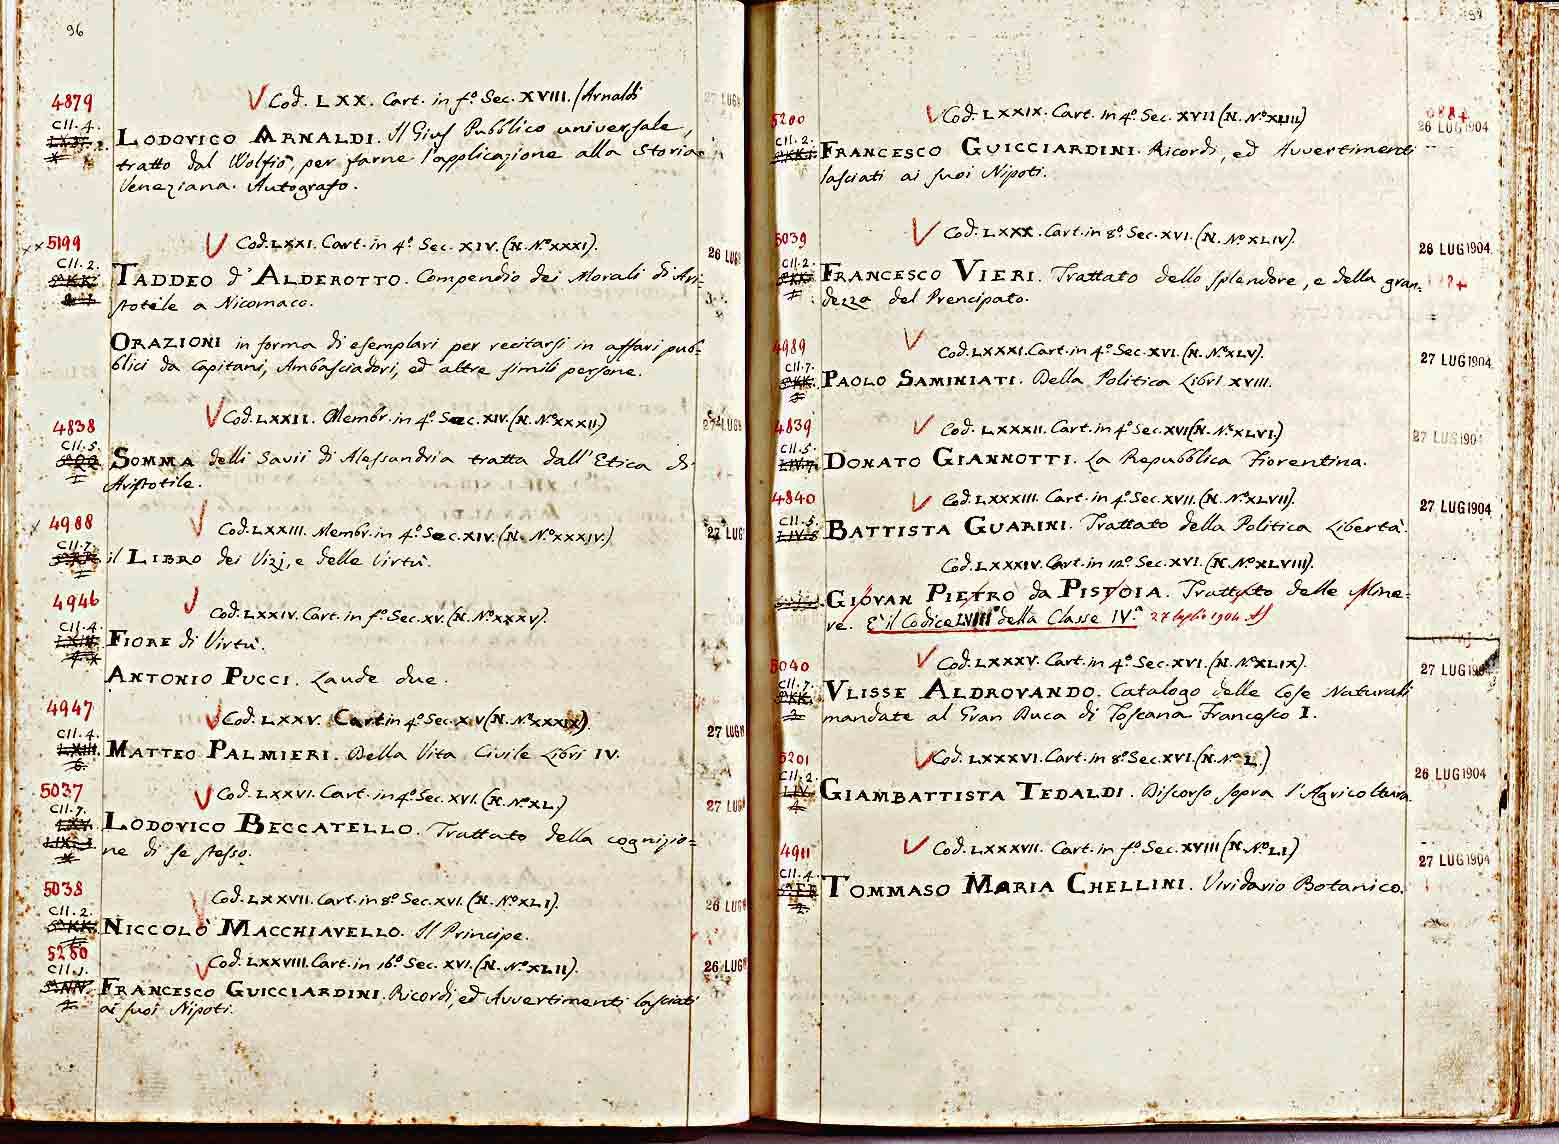 96
4879
Cod. LXX. Cart. in f.º Sec. XVIII. (Arnaldi
CII. 4.
LODOVICO ARNALDI. Il Gius Pubblico universale,
tratto dal Wolfio, per farne l'applicazione alla Storia
Veneziana. Autografo.
5199
Cod. LXXI. Cart. in 4º. Sec. XIV. (N. Nº. XXXI).
26 LUG
CII. 2.
TADDEO d'ALDEROTTO. Compendio dei Morali di Ari-
stotele a Nicomaco.
ORAZIONI in forma di esemplari per recitarsi in affari pub-
blici da Capitani, Ambasciadori, ed altre simili persone.
4838
Cod. LXXII. Membr. in 4º. Sec. XIV. (N. Nº. XXXII)
27 LUG
CII. 5.
SOMMA delli Savii di Alessandria tratta dall'Etica di
Aristotile.
4988
Cod. LXXIII. Membr. in 4º. Sec. XIV. (N. Nº. XXXIV.)
27 LUG
CII. 7.
il LIBRO dei Vizj, e delle Virtù.
4946
Cod. LXXIV. Cart. in fº. Sec. XV. (N. Nº. XXXV).
CII. 4.
FIORE di Virtù.
ANTONIO PUCCI. Laude due.
4947
Cod. LXXV. Cart in 4º. Sec. XV (N. Nº. XXXIX).
27 LUG
CII. 4.
LXIII.
6.
MATTEO PALMIERI. Della Vita Civile Libri IV.
5037
Cod. LXXVI. Cart. in 4º. Sec. XVI. (N. Nº. XL.)
27 LUG
CII. 7.
LODOVICO BECCATELLO. Trattato della cognizio=
ne di se stesso.
5038
Cod. LXXVII. Cart. in 8º. Sec. XVI. (N. Nº. XLI).
26 LUG
CII. 2.
NICCOLÒ MACCHIAVELLO. Il Principe.
5280
Cod. LXXVIII. Cart. in 16º. Sec. XVI. (N. Nº. XLII).
26 LUG
CII. 1.
FRANCESCO GUICCIARDINI. Ricordi, ed Avvertimenti lasciati
ai suoi Nipoti.
5200
Cod. LXXIX. Cart. in 4º. Sec. XVII (N. Nº. XLIII)
26 LUG 1904
CII. 2.
FRANCESCO GUICCIARDINI. Ricordi, ed Avvertimenti
lasciati ai suoi Nipoti.
5039
Cod. LXXX. Cart. in 8º. Sec. XVI. (N. Nº. XLIV).
26 LUG 1904
CII. 2.
FRANCESCO VIERI. Trattato dello splendore, e della gran-
dezza del Prencipato.
4989
Cod. LXXXI. Cart. in 4º. Sec. XVI. (N. Nº. XLV).
27 LUG 1904
CII. 7.
PAOLO SAMINIATI. Della Politica Libri XVIII.
4839
Cod. LXXXII. Cart. in 4º. Sec. XVI (N. Nº. XLVI.)
27 LUG 1904
CII. 5.
DONATO GIANNOTTI. La Repubblica Fiorentina.
4840
Cod. LXXXIII. Cart. in 4º. Sec. XVII. (N. Nº. XLVII).
27 LUG 1904
CII. 5.
BATTISTA GUARINI. Trattato della Politica Libertà.
Cod. LXXXIV. Cart. in 12º. Sec. XVI. (N. Nº. XLVIII).
GIOVAN PIETRO da PISTOIA. Trattato delle Mine-
re. E' il Codice LVIII della Classe IV.ª 27 luglio 1904
5040
Cod. LXXXV. Cart. in 4º. Sec. XVI. (N. Nº. XLIX).
27 LUG 1904
CII. 7.
VLISSE ALDROVANDO. Catalogo delle Cose Naturali
mandate al Gran Duca di Toscana Francesco I.
5201
Cod. LXXXVI. Cart. in 8º. Sec. XVI. (N. Nº. L.)
26 LUG 1904
CII. 2.
LIV.
4
GIAMBATTISTA TEDALDI. Discorso sopra l'Agricoltura.
4911
Cod. LXXXVII. Cart. in fº. Sec. XVIII (N. Nº. LI)
27 LUG 1904
CII. 4.
TOMMASO MARIA CHELLINI. Viridario Botanico.